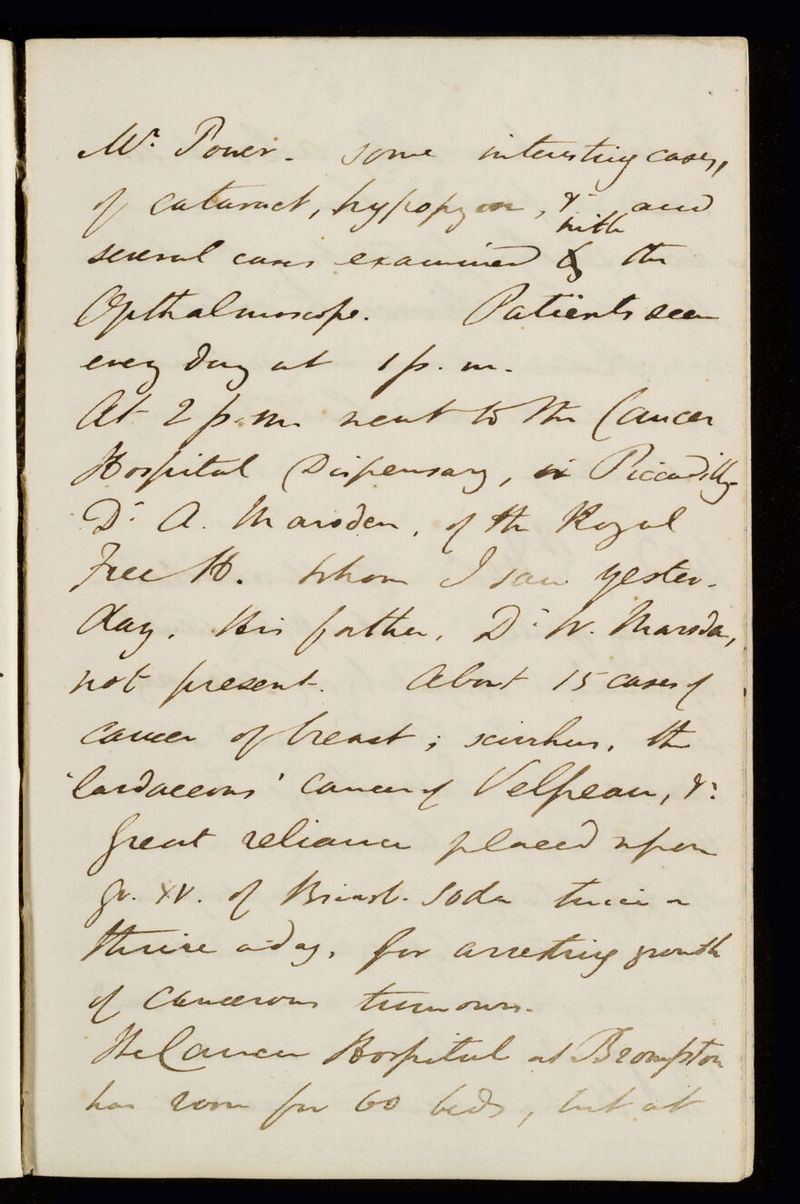 Mr. Power. some interesting cases,
of cataract, hypopyon, &c and
with
several cases examined by the
Opthalmoscope. Patients seen
every day at 1 p.m.
At 2 p.m. went to the Cancer
Hospital Dispensary, in Piccadilly
Dr. A. Marsden, of the Royal
Free H. whom I saw yester-
day. His father, Dr. W. Marsden,
not present. About 15 cases of
cancer of breast; scirrhus, the
'lardaceous' cancer of Velpeau, &c
Great reliance placed upon
gr. xv. of Bicarb. Soda twice or
thrice a day, for arresting growth
of cancerous tumours.
The Cancer Hospital at Brompton
has room for 60 beds, but at